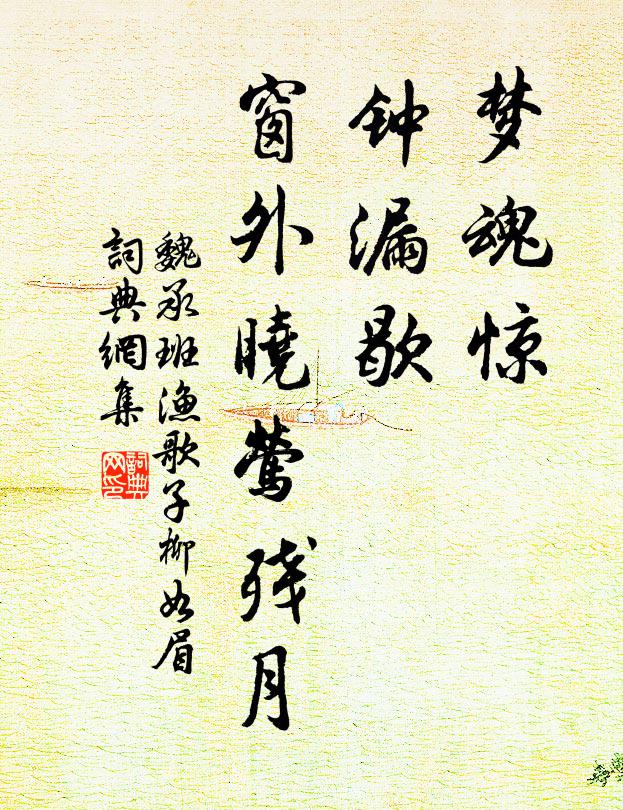 梦魂惊
钟漏歇
窗外晓莺残月
魏承班渔歌子柳如眉
詞典網集
詞典网印